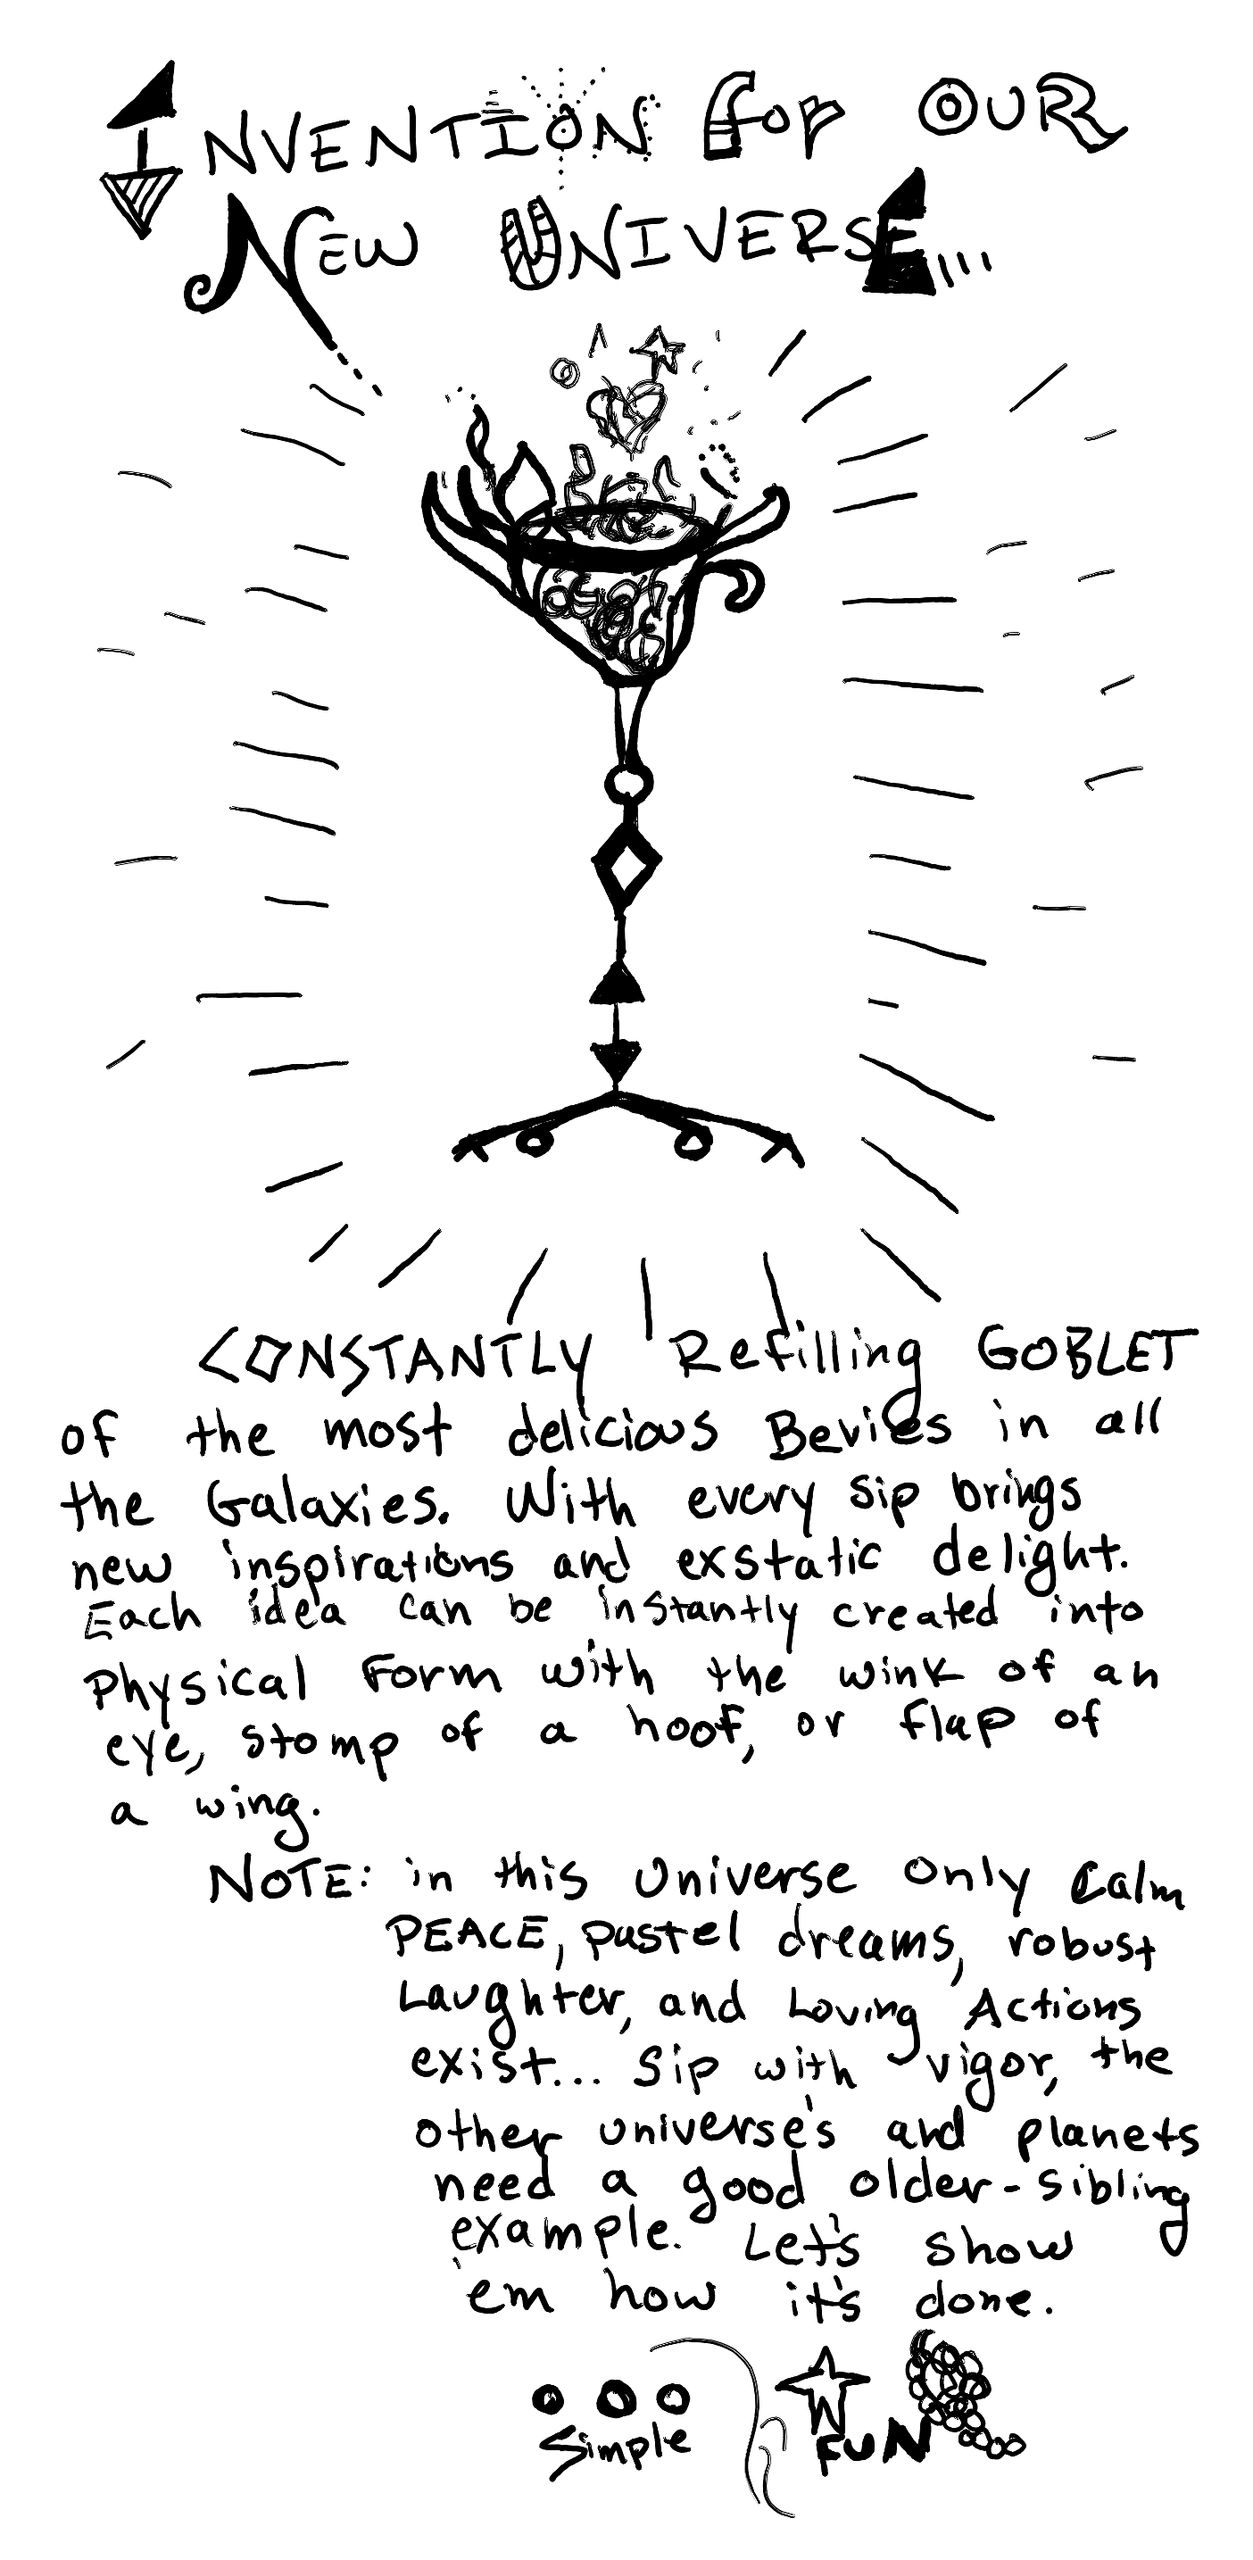 INVENTION for OUR
NEW UNIVERSE...
CONSTANTLY Refilling GOBLET
of the most delicious Bevies in all
the Galaxies. With every sip brings
new inspirations and exstatic delight.
Each idea can be instantly created into
Physical Form with the wink of an
eye, stomp of a hoof, or flap of
a wing.
NOTE: in this Universe Only Calm
PEACE, pastel dreams, robust
Laughter, and Loving Actions
exist... Sip with vigor, the
other universe's and planets
need a good older-sibling
example. Let's show
'em how it's done.
Simple
FUN